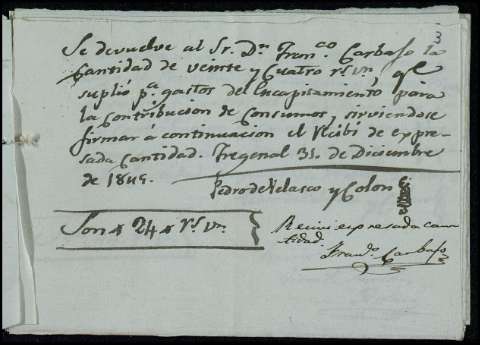 3
Se devuelve al Sr. Dn. Franco Carbajo la
Cantidad de veinte y Cuatro rs. vn. qe
suplió pa. gastos del Encapisamiento para
la Contribucion de Consumos, sirviendose
firmar á continuacion el Recibí de expre-
sada Cantidad. Fregenal 31. de Diciembre
de 1845.
Pedro de Velasco y Colon
Son # 24 # rs. vn.
Recivi expresada can
tidad.
Frando. Carbajo